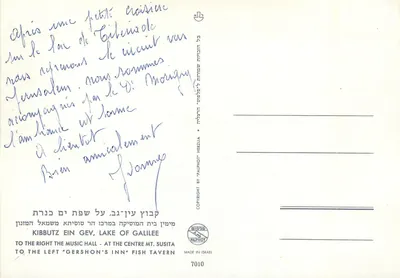 Après une petite croisière
sur le lac de Tibériade
nous reprenons le circuit vers
Jérusalem. nous sommes
accompagnés par le Dr
l'ambiance est bonne
A bientôt
Bien amicalement
קבוץ עין־גב. על שפת ים כנרת
מימין בית המוסיקה במרכז הר סוסיתא משמאל המזנון
KIBBUTZ EIN GEV, LAKE OF GALILEE
TO THE RIGHT THE MUSIC HALL - AT THE CENTRE MT. SUSITA
TO THE LEFT "GERSHON'S INN" FISH TAVERN
COPYRIGHT BY "PALPHOT" HERZLIA
MADE IN ISRAEL
7010